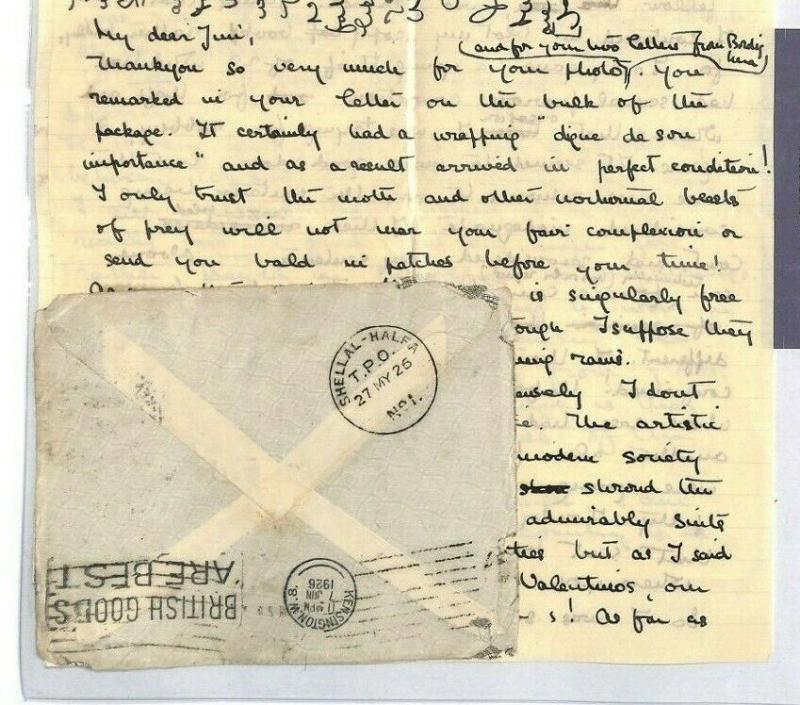 My dear Jim,
(and for your two letters from Bordighera)
Thankyou so very much for your photo. You
remarked in your letter on the bulk of the
package. It certainly had a wrapping "digne de son
importance" and as a result arrived in perfect condition!
I only trust the moth and other nocturnal beasts
of prey will not mar your fair complexion or
send you bald in patches before your time!
is singularly free
I suppose they
rains.
I dont
The artistic
modern society
shroud the
admirably suits
but as I said
Valentinos, our
! As far as
SHELLAL-HALFA
T.P.O.
27 MY 26
No1.
BRITISH GOODS
ARE BEST
KENSINGTON.W.8.
7 JUN
1926